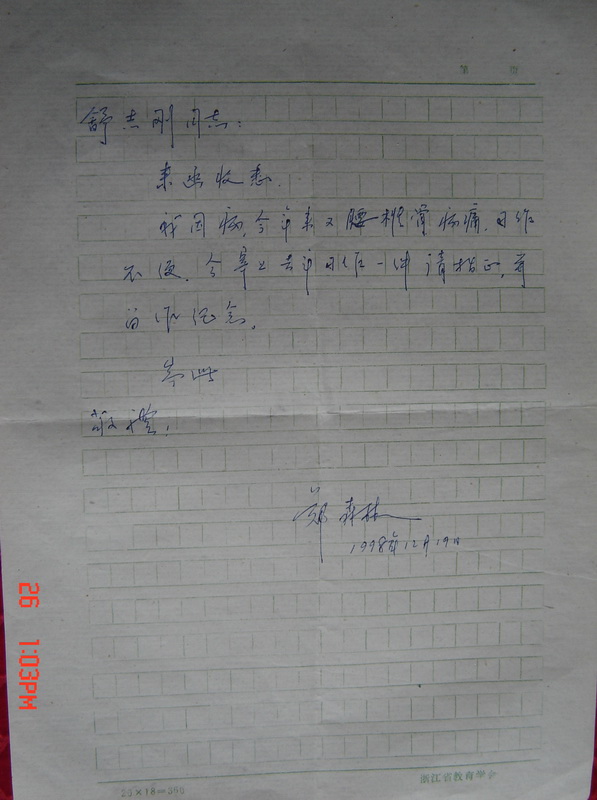 第 页
舒志刚同志：
来函收悉.
我因病,今年来又腰椎骨病痛,
不便,今寄上去年 作一件 请指正,并
留作纪念,
专此
敬礼,
郑森林
1998年12月19日
20×18=360
浙江省教育学会
26 1:03PM